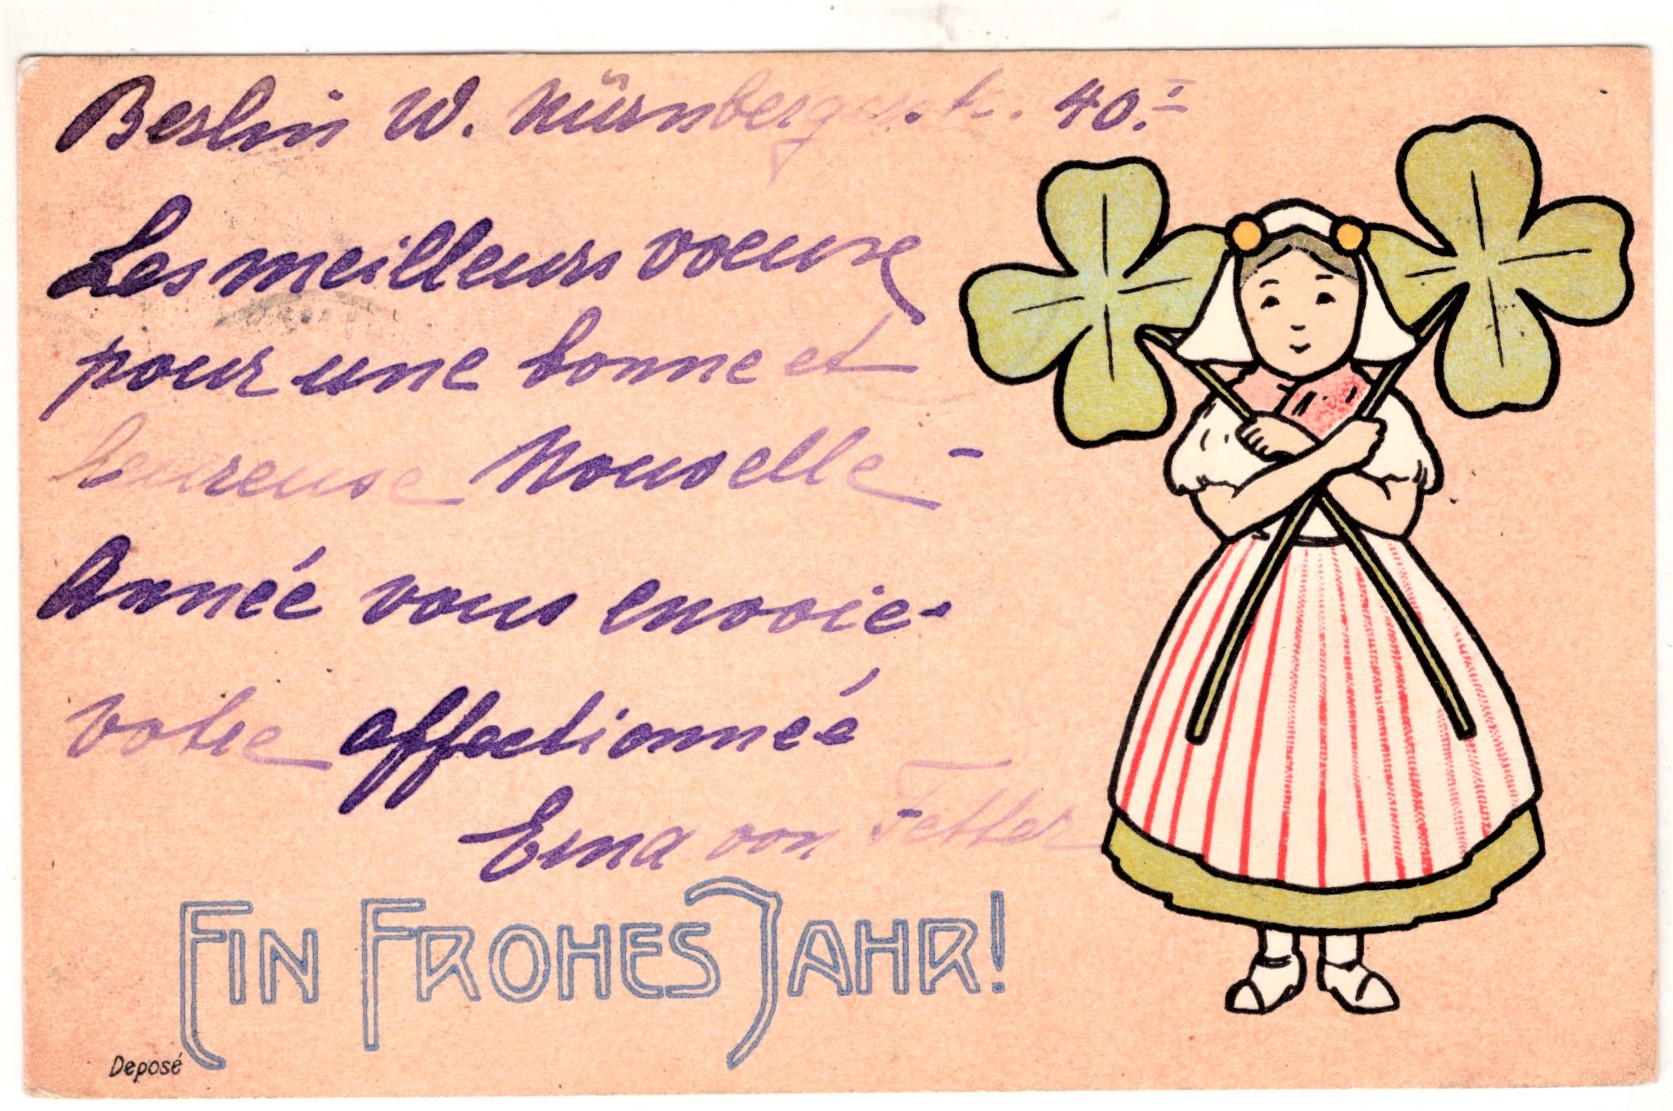 Berlin W. Nürnbergerstr. 40.I
Les meilleurs voeux
pour une bonne et
heureuse Nouvelle-
Année vous envoie-
votre affectionnée
Erna von Fetter
EIN FROHES JAHR!
Deposé